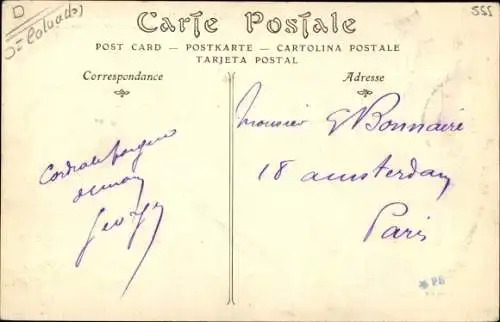 D
= Calvados
555
Carte Postale
POST CARD — POSTKARTE — CARTOLINA POSTALE
TARJETA POSTAL
Correspondance
Adresse
Monsieur G Bonnaire
18 amsterdam
Paris
Cordiale
Georges
* PB